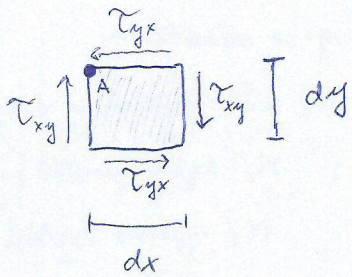 τyx
A
τxy
τxy
dy
τyx
dx